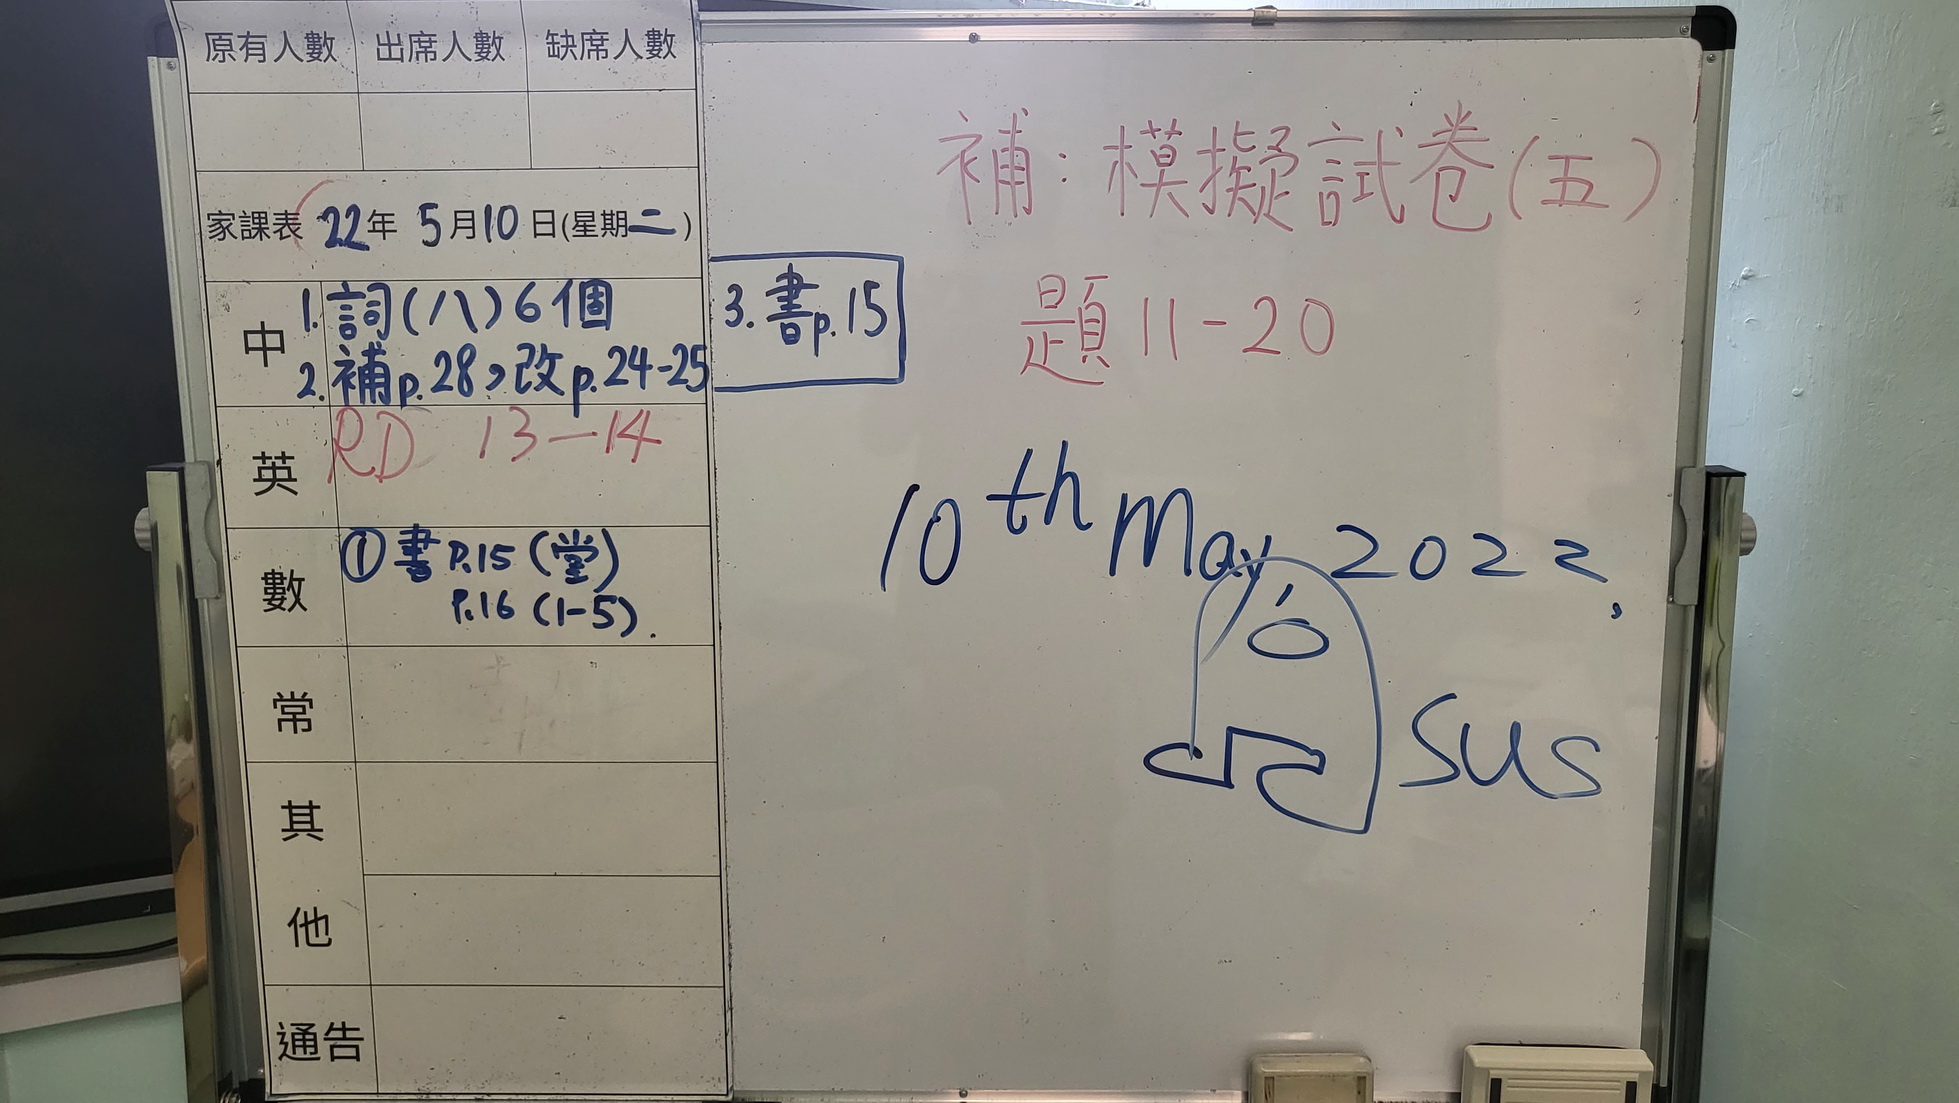 原有人數 出席人數 缺席人數
家課表(22年 5月10日(星期二)
中 1. 詞(八)6個
2. 補p.28,改p.24-25
3. 書p.15
英 RD 13—14
數 ①書P.15(堂)
P.16 (1-5).
常
其
他
通告
補:模擬試卷(五)
題11-20
10th May, 2022
sus